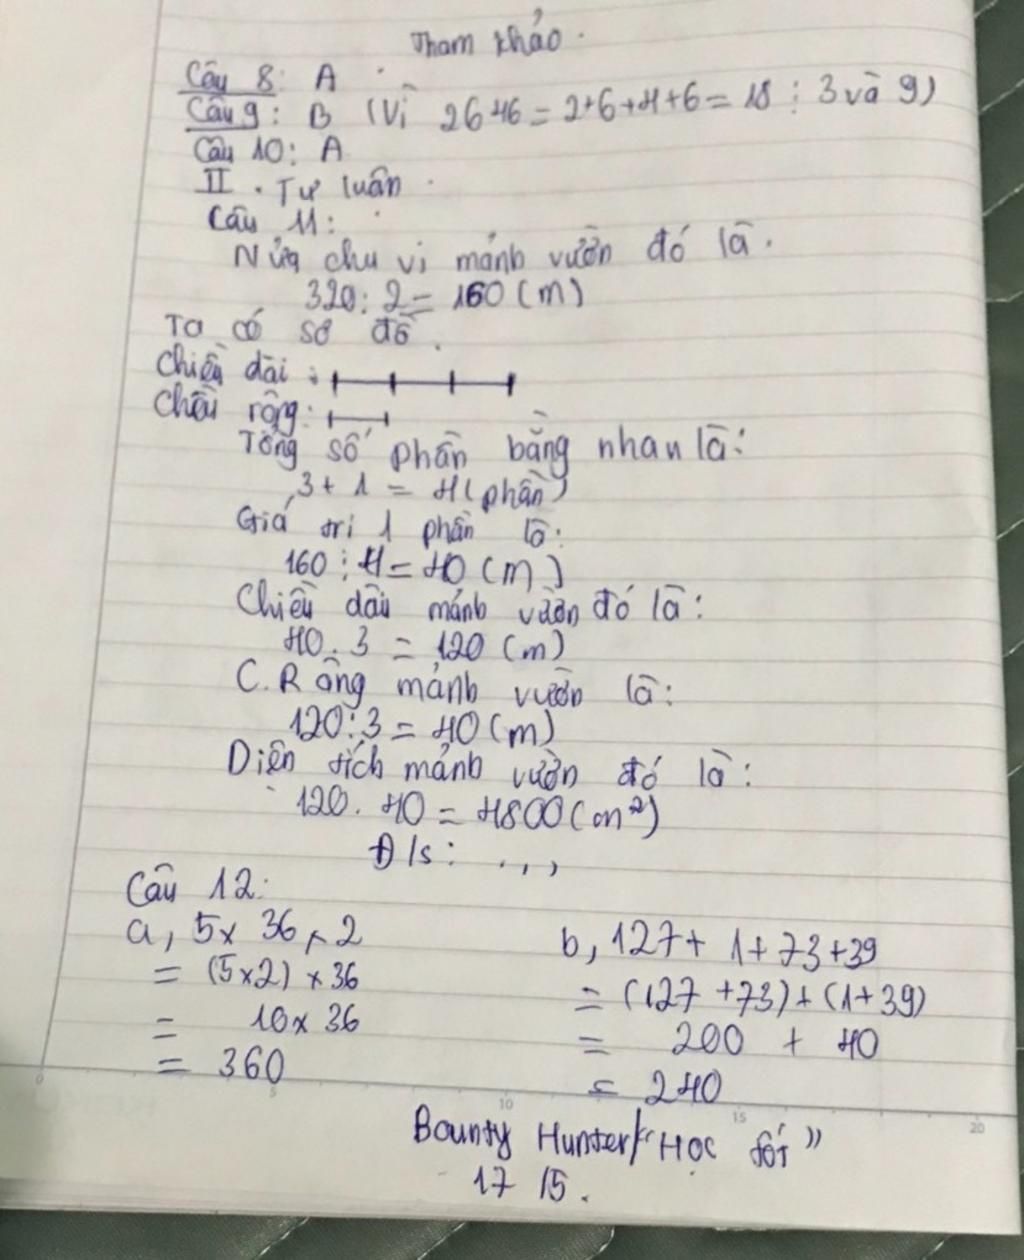 Tham khảo.
Câu 8: A
Câu 9: B (Vì 2646 = 2+6+4+6 = 18 ⋮ 3 và 9)
Câu 10: A
II. Tự luận
Câu 11:
Nửa chu vi mảnh vườn đó là.
320 : 2 = 160 (m)
Ta có sơ đồ.
Chiều dài:
Chều rộng:
Tổng số phần bằng nhau là:
3 + 1 = 4 (phần)
Giá trị 1 phần là:
160 : 4 = 40 (m)
Chiều dài mảnh vườn đó là:
40 . 3 = 120 (m)
C. Rộng mảnh vườn là:
120 : 3 = 40 (m)
Diện tích mảnh vườn đó là:
120 . 40 = 4800 (m²)
Đ/s: . , ,
Câu 12:
a, 5 x 36 x 2
= (5 x 2) x 36
= 10 x 36
= 360
b, 127 + 1 + 73 + 39
= (127 + 73) + (1 + 39)
= 200 + 40
= 240
5 10 15 20
Bounty Hunter/"Học dốt"
17 15.